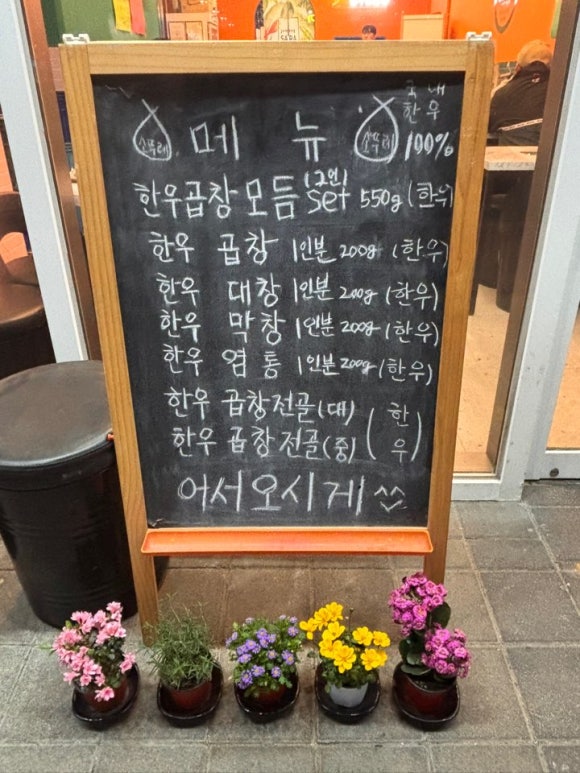 국내
한우
100%
소뚜레 메뉴 소뚜레
한우곱창모듬 Set (2인) 550g (한우)
한우 곱창 1인분 200g (한우)
한우 대창 1인분 200g (한우)
한우 막창 1인분 200g (한우)
한우 염통 1인분 200g (한우)
한우 곱창전골(대) (한우)
한우 곱창전골(중)
어서오시게 ^^